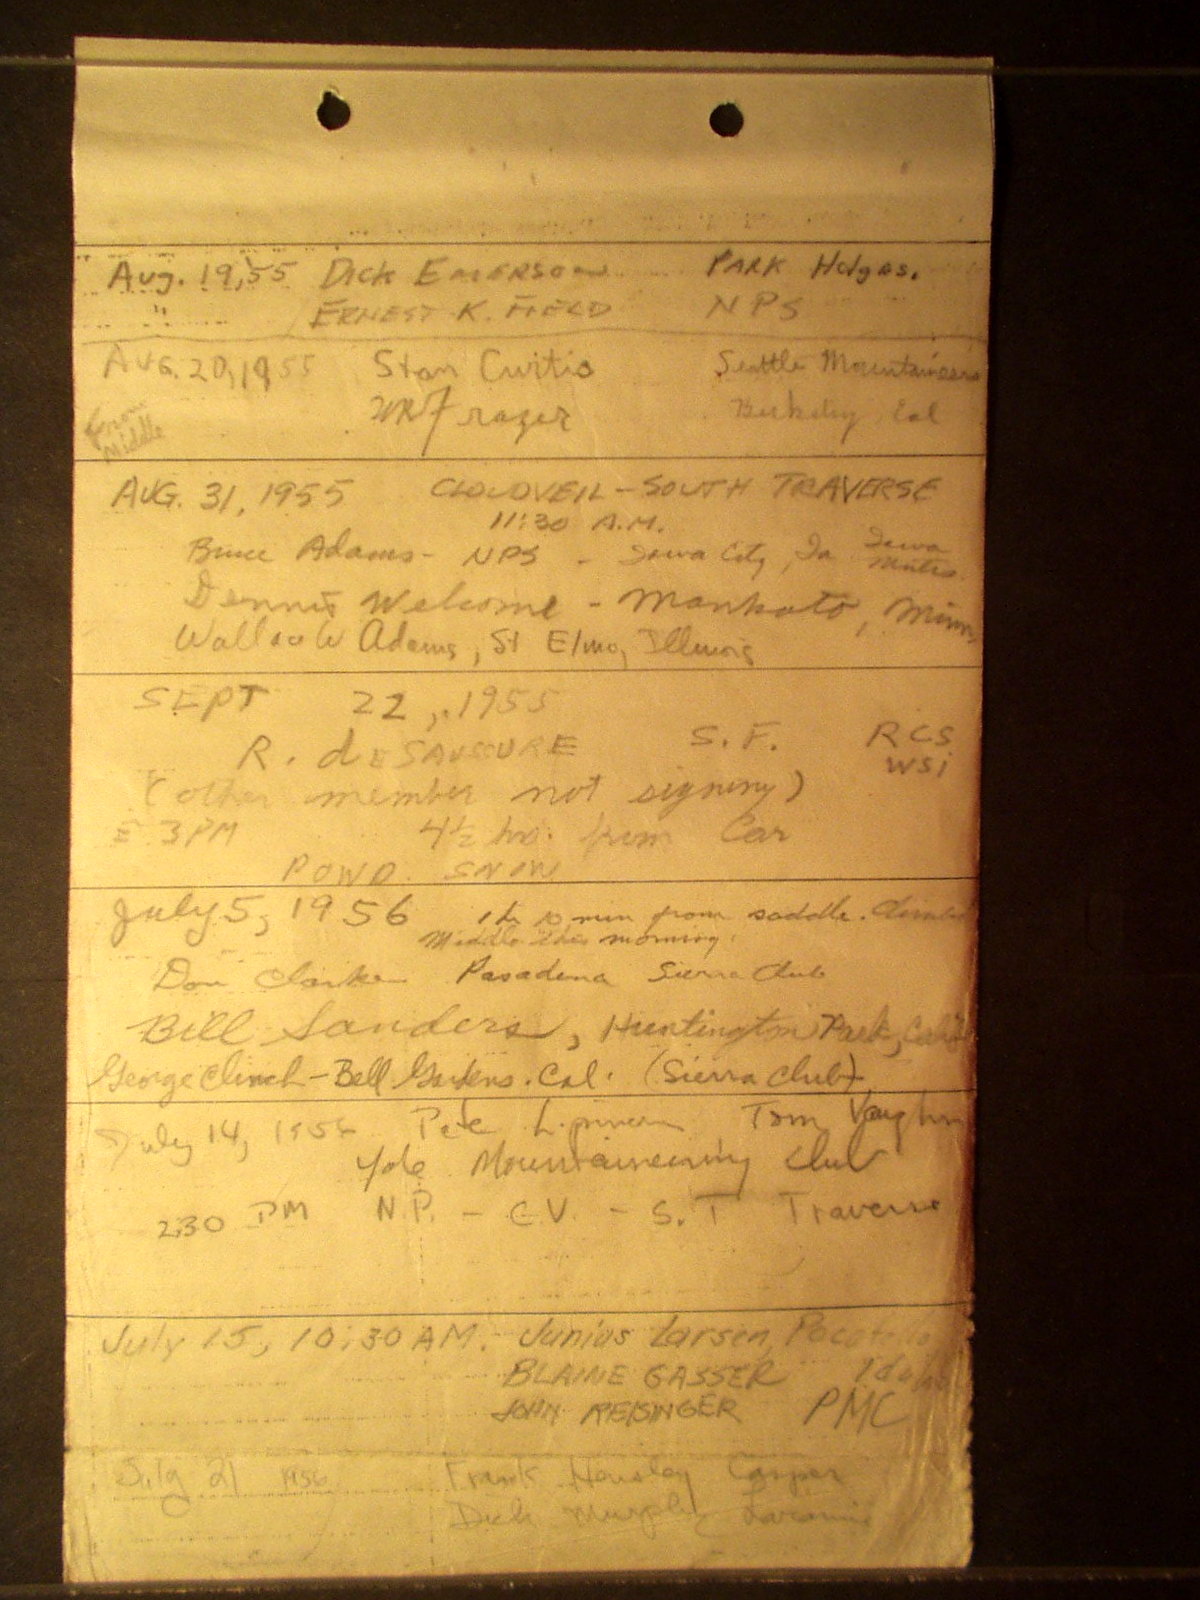 Aug. 19, 55 DICK EMERSON PARK Hdqrs.
" ERNEST K. FIELD NPS
AUG. 20, 1955 Stan Curtis Seattle Mountaineers
from Middle WR Frazer Berkeley Cal
AUG. 31, 1955 CLOUDVEIL - SOUTH TRAVERSE
11:30 A.M.
Bruce Adams - NPS - Iowa City, Ia Iowa Mntrs.
Dennis Welcome - Mankato, Minn.
Wallace W Adams, St Elmo, Illinois
SEPT 22, 1955
R. deSAUSSURE S.F. RCS
WSI
(other member not signing)
3 PM 4½ hrs. from Car
POWD. SNOW
July 5, 1956 1 hr 10 min from saddle. Climbed
Middle this morning.
Don Clarke Pasadena Sierra Club
Bill Sanders, Huntington Park, Calif
George Clinch - Bell Gardens. Cal. (Sierra Club)
July 14, 1956 Pete Tom Vaughn
Yale Mountaineering Club
2:30 PM N.P. - C.V. - S.T Traverse
July 15, 10:30 AM. - Junius Larsen, Pocatello
BLAINE GASSER Idaho
JOHN REISINGER PMC
July 21 1956 Frank Housley Casper
Dick Murphy Laramie